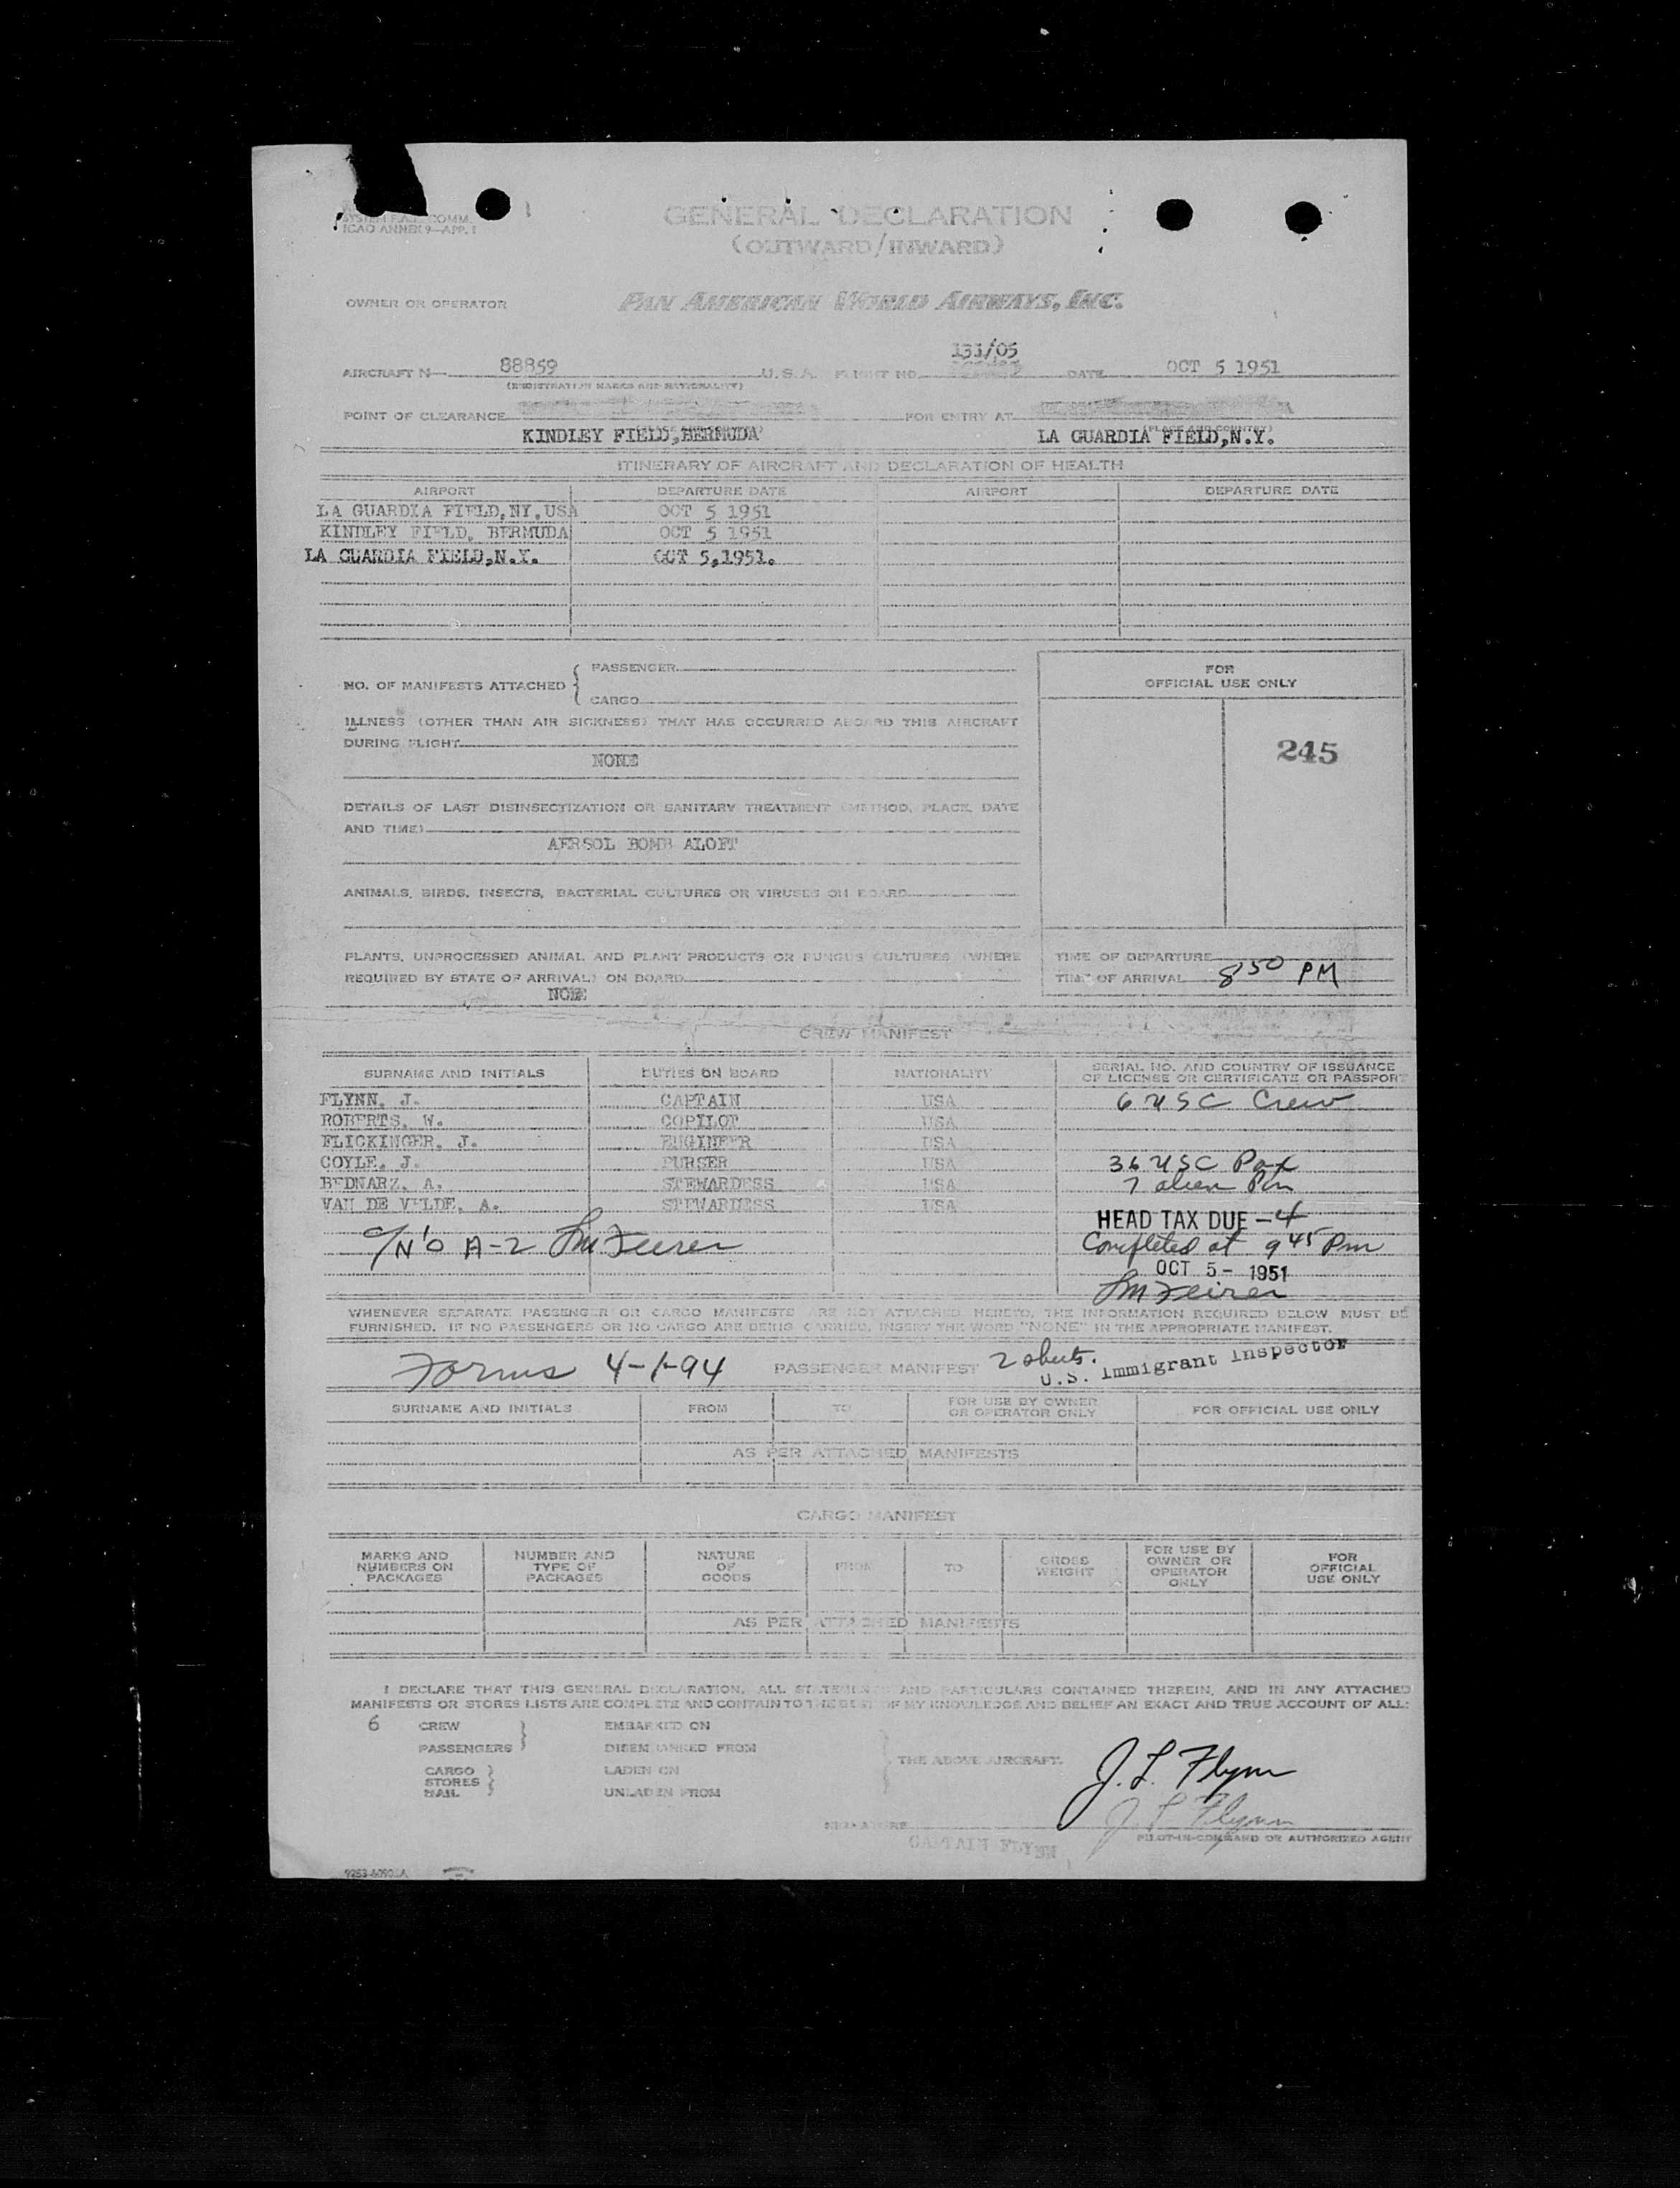 SYSTEM F.A.L. COMM.
ICAO ANNEX 9—APP. 1
GENERAL DECLARATION
(OUTWARD/INWARD)
OWNER OR OPERATOR PAN AMERICAN WORLD AIRWAYS, INC.
131/05
AIRCRAFT N— 88859 U.S.A. FLIGHT NO. DATE OCT 5 1951
(REGISTRATION MARKS AND NATIONALITY)
POINT OF CLEARANCE FOR ENTRY AT
KINDLEY FIELD,BERMUDA LA GUARDIA FIELD,N.Y.
(PLACE AND COUNTRY)
ITINERARY OF AIRCRAFT AND DECLARATION OF HEALTH
AIRPORT DEPARTURE DATE AIRPORT DEPARTURE DATE
LA GUARDIA FIELD,NY,USA OCT 5 1951
KINDLEY FIELD, BERMUDA OCT 5 1951
LA GUARDIA FIELD,N.Y. OCT 5,1951.
NO. OF MANIFESTS ATTACHED { PASSENGER
CARGO
FOR
OFFICIAL USE ONLY
ILLNESS (OTHER THAN AIR SICKNESS) THAT HAS OCCURRED ABOARD THIS AIRCRAFT
DURING FLIGHT
NONE
245
DETAILS OF LAST DISINSECTIZATION OR SANITARY TREATMENT (METHOD, PLACE, DATE
AND TIME)
AERSOL BOMB ALOFT
ANIMALS, BIRDS, INSECTS, BACTERIAL CULTURES OR VIRUSES ON BOARD
PLANTS, UNPROCESSED ANIMAL AND PLANT PRODUCTS OR FUNGUS CULTURES (WHERE
REQUIRED BY STATE OF ARRIVAL) ON BOARD
NONE
TIME OF DEPARTURE
TIME OF ARRIVAL 8 50 PM
CREW MANIFEST
SURNAME AND INITIALS DUTIES ON BOARD NATIONALITY SERIAL NO. AND COUNTRY OF ISSUANCE
OF LICENSE OR CERTIFICATE OR PASSPORT
FLYNN, J. CAPTAIN USA 6 USC Crew
ROBERTS, W. COPILOT USA
FLICKINGER, J. ENGINEER USA
COYLE, J. PURSER USA 36 USC Pax
BEDNARZ, A. STEWARDESS USA 7 alien Pax
VAN DE VELDE, A. STEWARDESS USA
HEAD TAX DUE - 4
A-2
Completed at 9 45 Pm
OCT 5 - 1951
WHENEVER SEPARATE PASSENGER OR CARGO MANIFESTS ARE NOT ATTACHED HERETO, THE INFORMATION REQUIRED BELOW MUST BE
FURNISHED. IF NO PASSENGERS OR NO CARGO ARE BEING CARRIED, INSERT THE WORD "NONE" IN THE APPROPRIATE MANIFEST.
Forms 4-1-94 PASSENGER MANIFEST 2 sheets.
U.S. Immigrant Inspector
SURNAME AND INITIALS FROM TO FOR USE BY OWNER
OR OPERATOR ONLY FOR OFFICIAL USE ONLY
AS PER ATTACHED MANIFESTS
CARGO MANIFEST
MARKS AND
NUMBERS ON
PACKAGES
NUMBER AND
TYPE OF
PACKAGES
NATURE
OF
GOODS
FROM
TO
GROSS
WEIGHT
FOR USE BY
OWNER OR
OPERATOR
ONLY
FOR
OFFICIAL
USE ONLY
AS PER ATTACHED MANIFESTS
I DECLARE THAT THIS GENERAL DECLARATION, ALL STATEMENTS AND PARTICULARS CONTAINED THEREIN, AND IN ANY ATTACHED
MANIFESTS OR STORES LISTS ARE COMPLETE AND CONTAIN TO THE BEST OF MY KNOWLEDGE AND BELIEF AN EXACT AND TRUE ACCOUNT OF ALL:
6 CREW EMBARKED ON
PASSENGERS DISEMBARKED FROM
THE ABOVE AIRCRAFT.
CARGO LADEN ON
STORES
MAIL UNLADEN FROM
J. L. Flynn
J L Flynn
SIGNATURE
PILOT-IN-COMMAND OR AUTHORIZED AGENT
CAPTAIN FLYNN